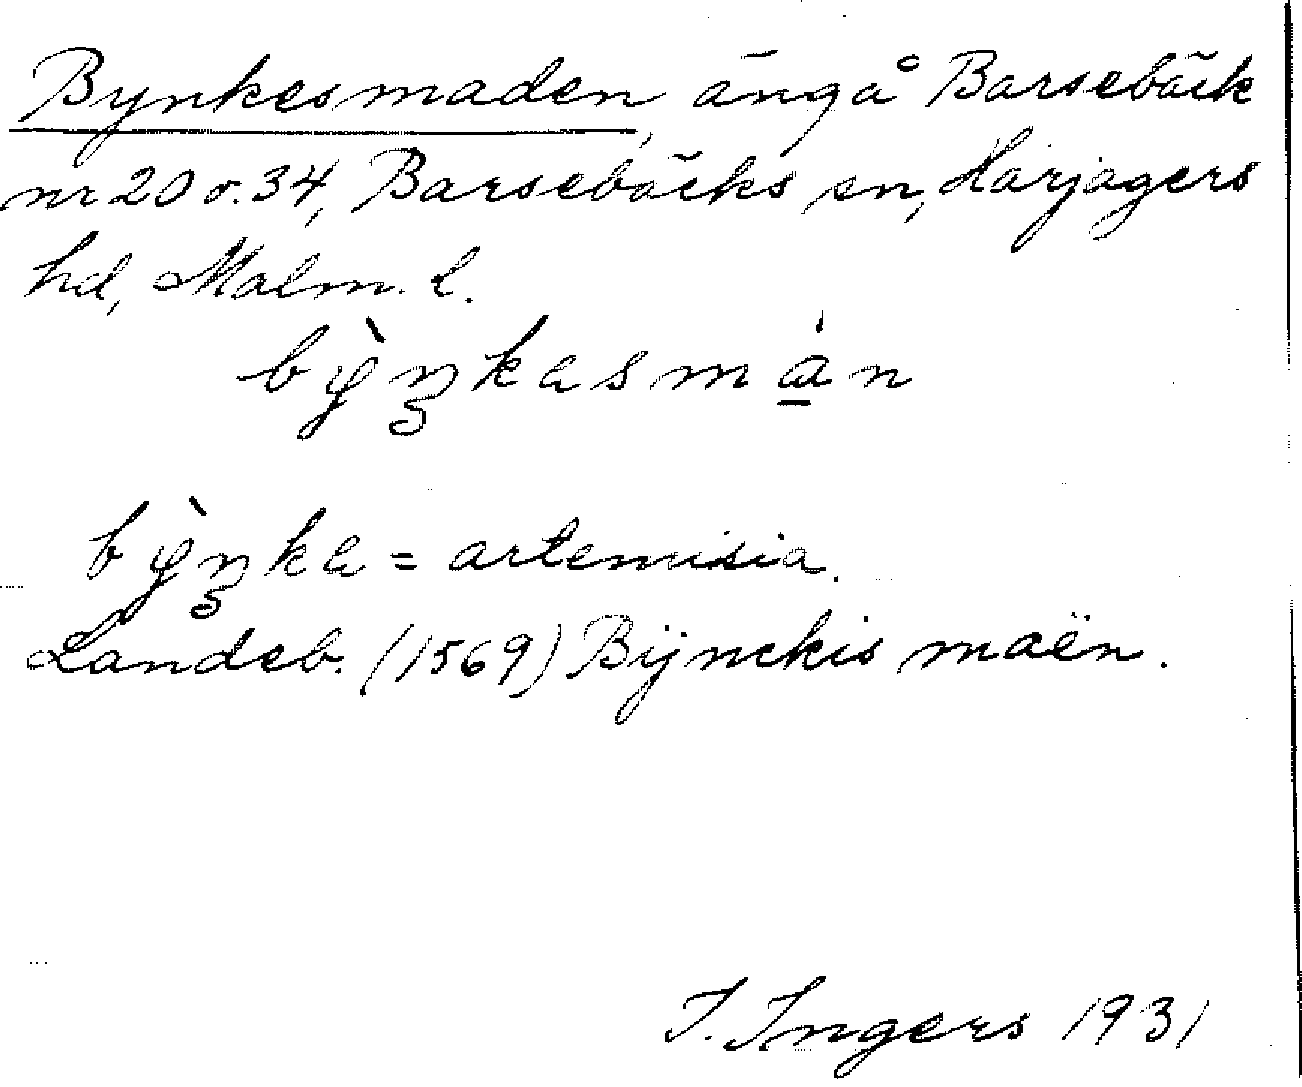 Bynkesmaden, äng å Barsebäck
nr 20 o. 34, Barsebäcks sn, Harjagers
hd, Malm. l.
bỳŋkasmän
bỳŋka = artemisia.
Landeb. (1569) Bÿnckis maën.
I. Ingers 1931